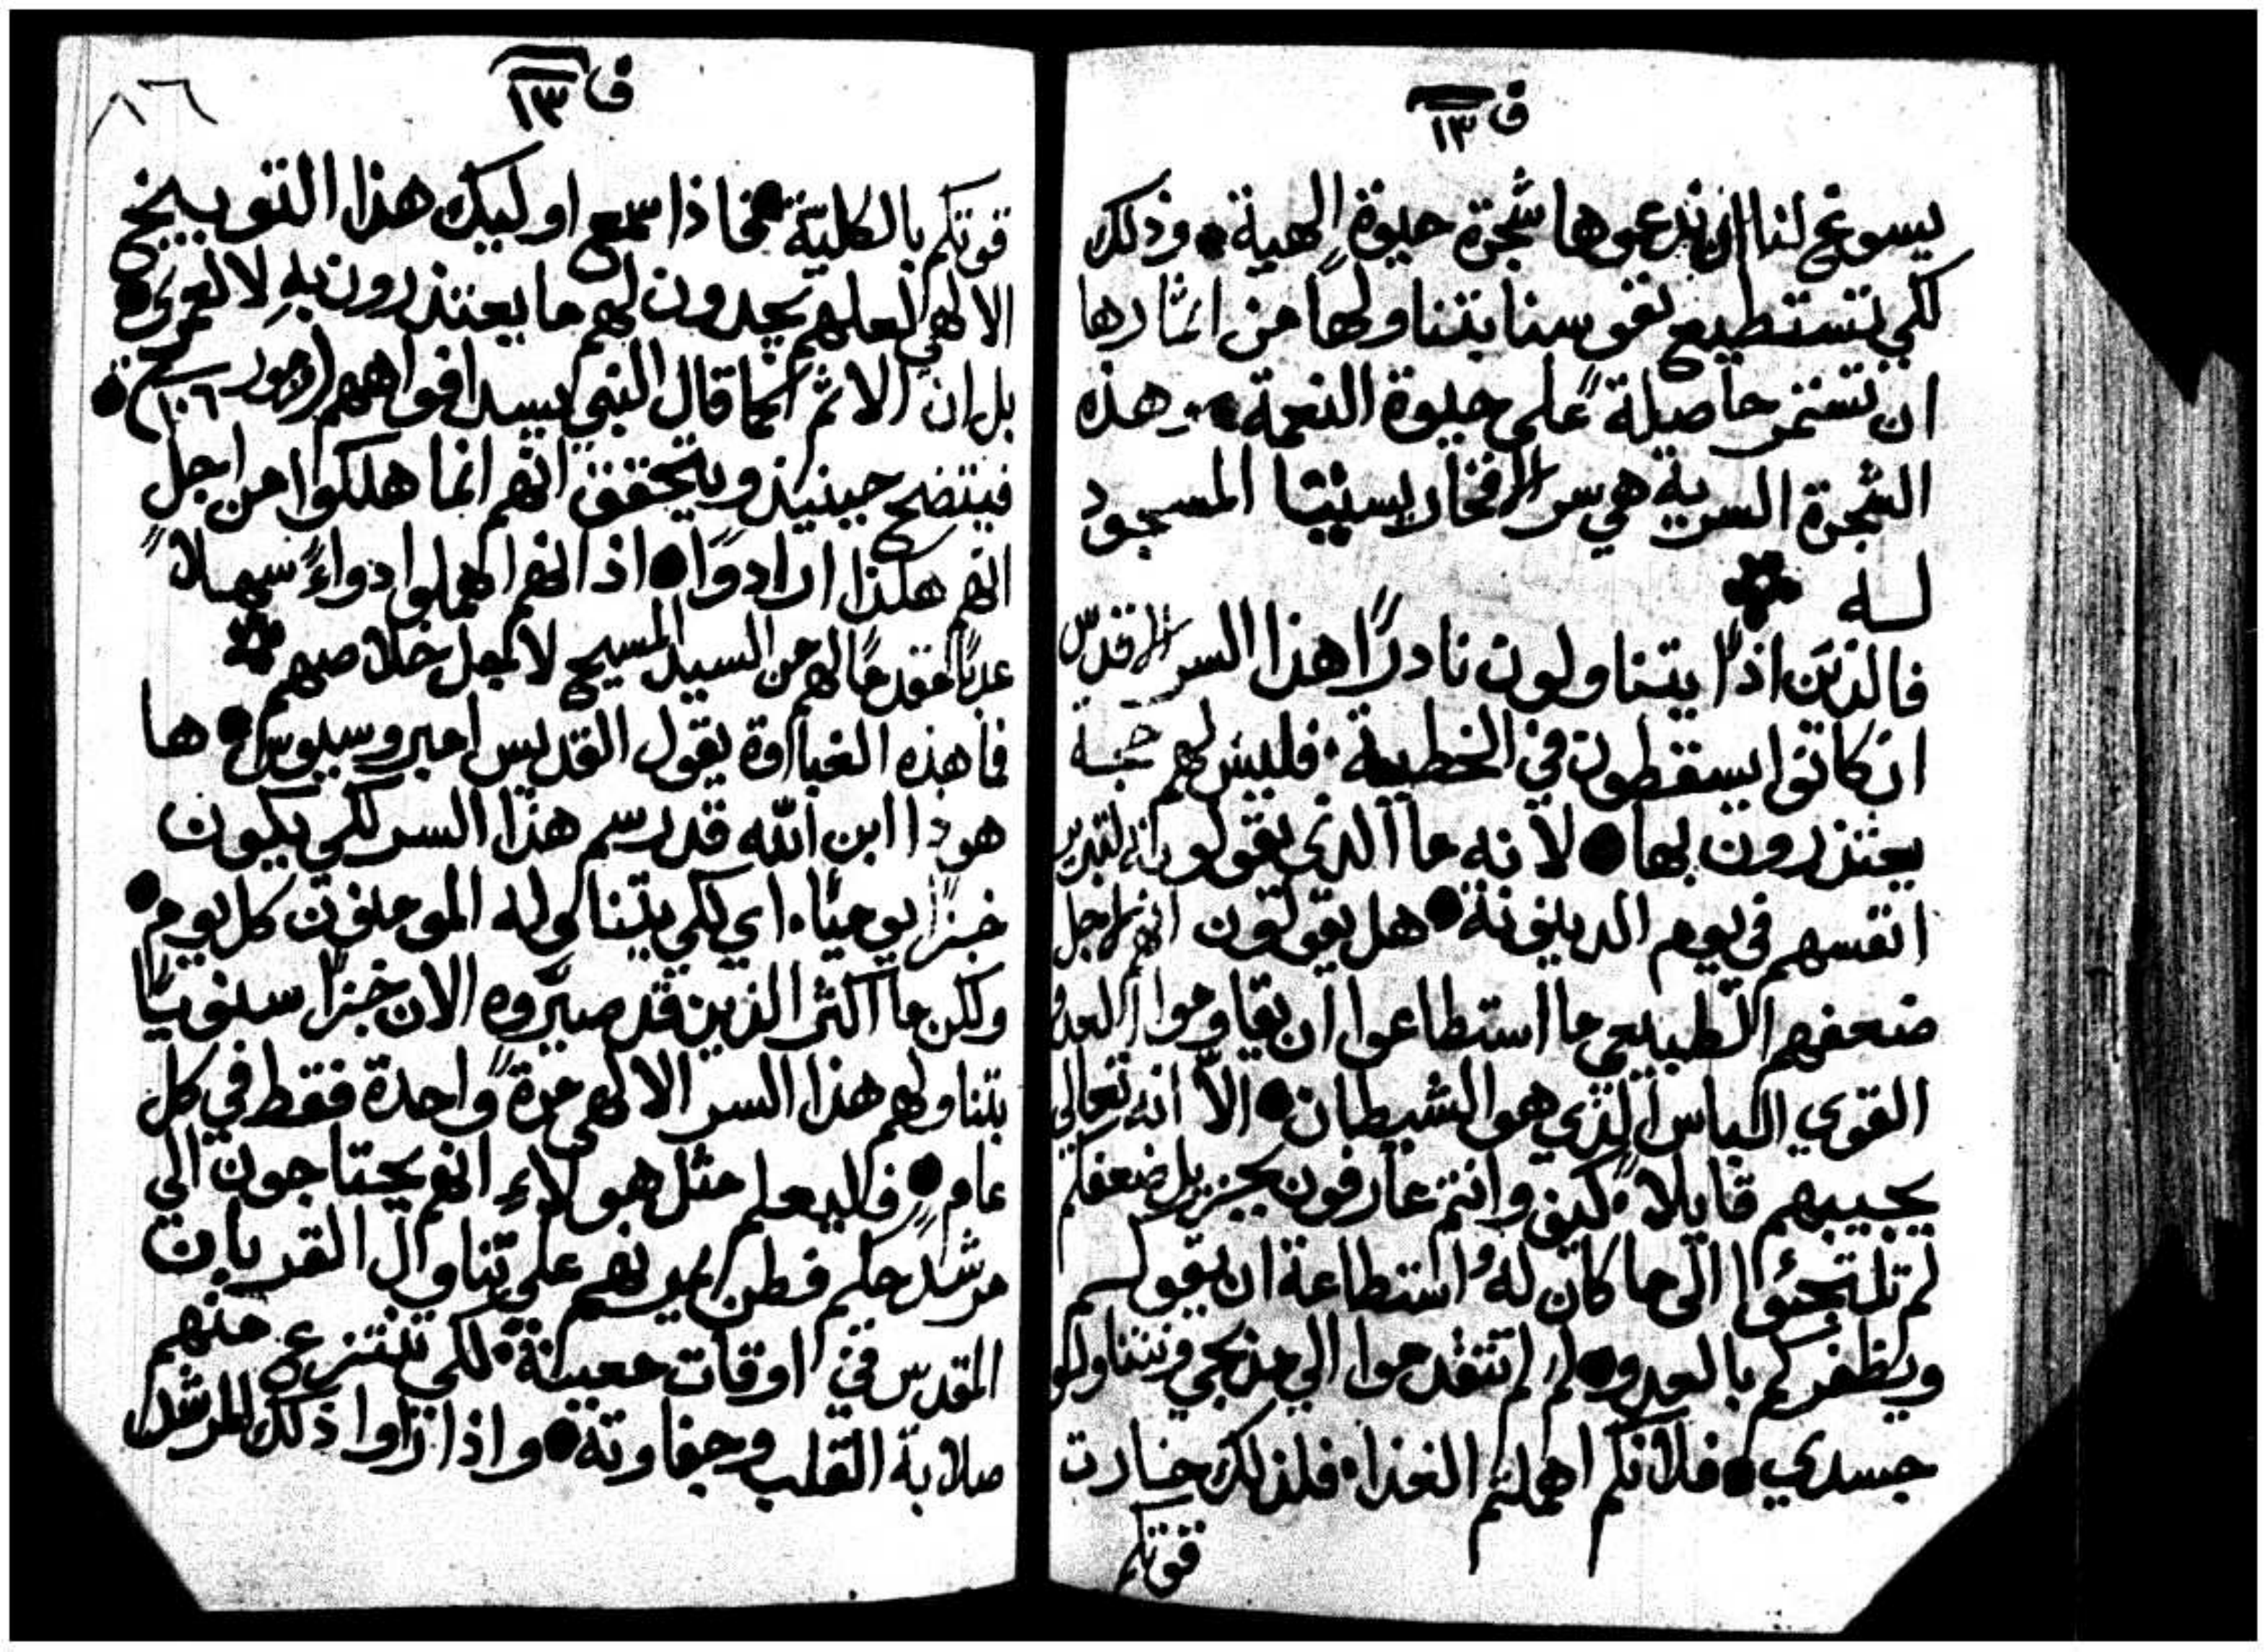 ف ١٣
يسوغ لنا ان ندعوها شجرة حيوة الهية • وذلك
لكي تستطيع نفوسنا بتناولها من اثمارها
ان تستمر حاصلةً على حيوة النعمة • وهذه
الشجرة السرية هي سر الافخارستيتا المسجود
له
فالذين اذًا يتناولون نادرًا هذا السر المقدس
ان كانوا يسقطون في الخطية • فليس لهم حجة
يعتذرون بها • لانه ما الذي يقولونه لتبرير
انفسهم في يوم الدينونة • هل يقولون انهم لاجل
ضعفهم الطبيعي ما استطاعوا ان يقاوموا العدو
القوي الباس الذي هو الشيطان • الا انه تعالى
يجيبهم قايلاً • كيف وانتم عارفون بجزيل ضعفكم
لم تلتجئوا الى ما كان له استطاعة ان يقويكم
ويظفركم بالعدو • لم لم تتقدموا الي مذبحي وتتناولوا
جسدي • فلانكم اهملتم الغذا • فلذلك خارت
قوتكم
ف ١٣
٨٦
قوتكم بالكلية • فماذا سمع اوليك هذا التوبيخ
الالهي لعلهم يجدون لهم ما يعتذرون به لا لعمري •
بل ان الاثم كما قال النبي يسد افواههم (مزمور ١٠٦) •
فيتضح حينيذ ويتحقق انهم انما هلكوا من اجل
انهم هكذا ارادوا • اذ انهم اهملوا دواءً سهلاً
عذبًا مقدمًا لهم من السيد المسيح لاجل خلاصهم
فما هذه الغباوة يقول القديس امبروسيوس • ها
هوذا ابن الله قد رسم هذا السر لكي يكون
خبزًا يوميًا • اي لكي يتناوله المومنون كل يوم •
ولكن ما اكثر الذين قد صيروه الان خبزًا سنويًا
بتناولهم هذا السر الالهي مرةً واحدة فقط في كل
عام • فليعلم مثل هولاءِ انهم يحتاجون الى
مرشد حكيم فطن يمرنهم على تناول القربان
المقدس في اوقات معينة • لكي تنتزع منهم
صلابة القلب وجفاوته • واذا راوا ذلك المرشد